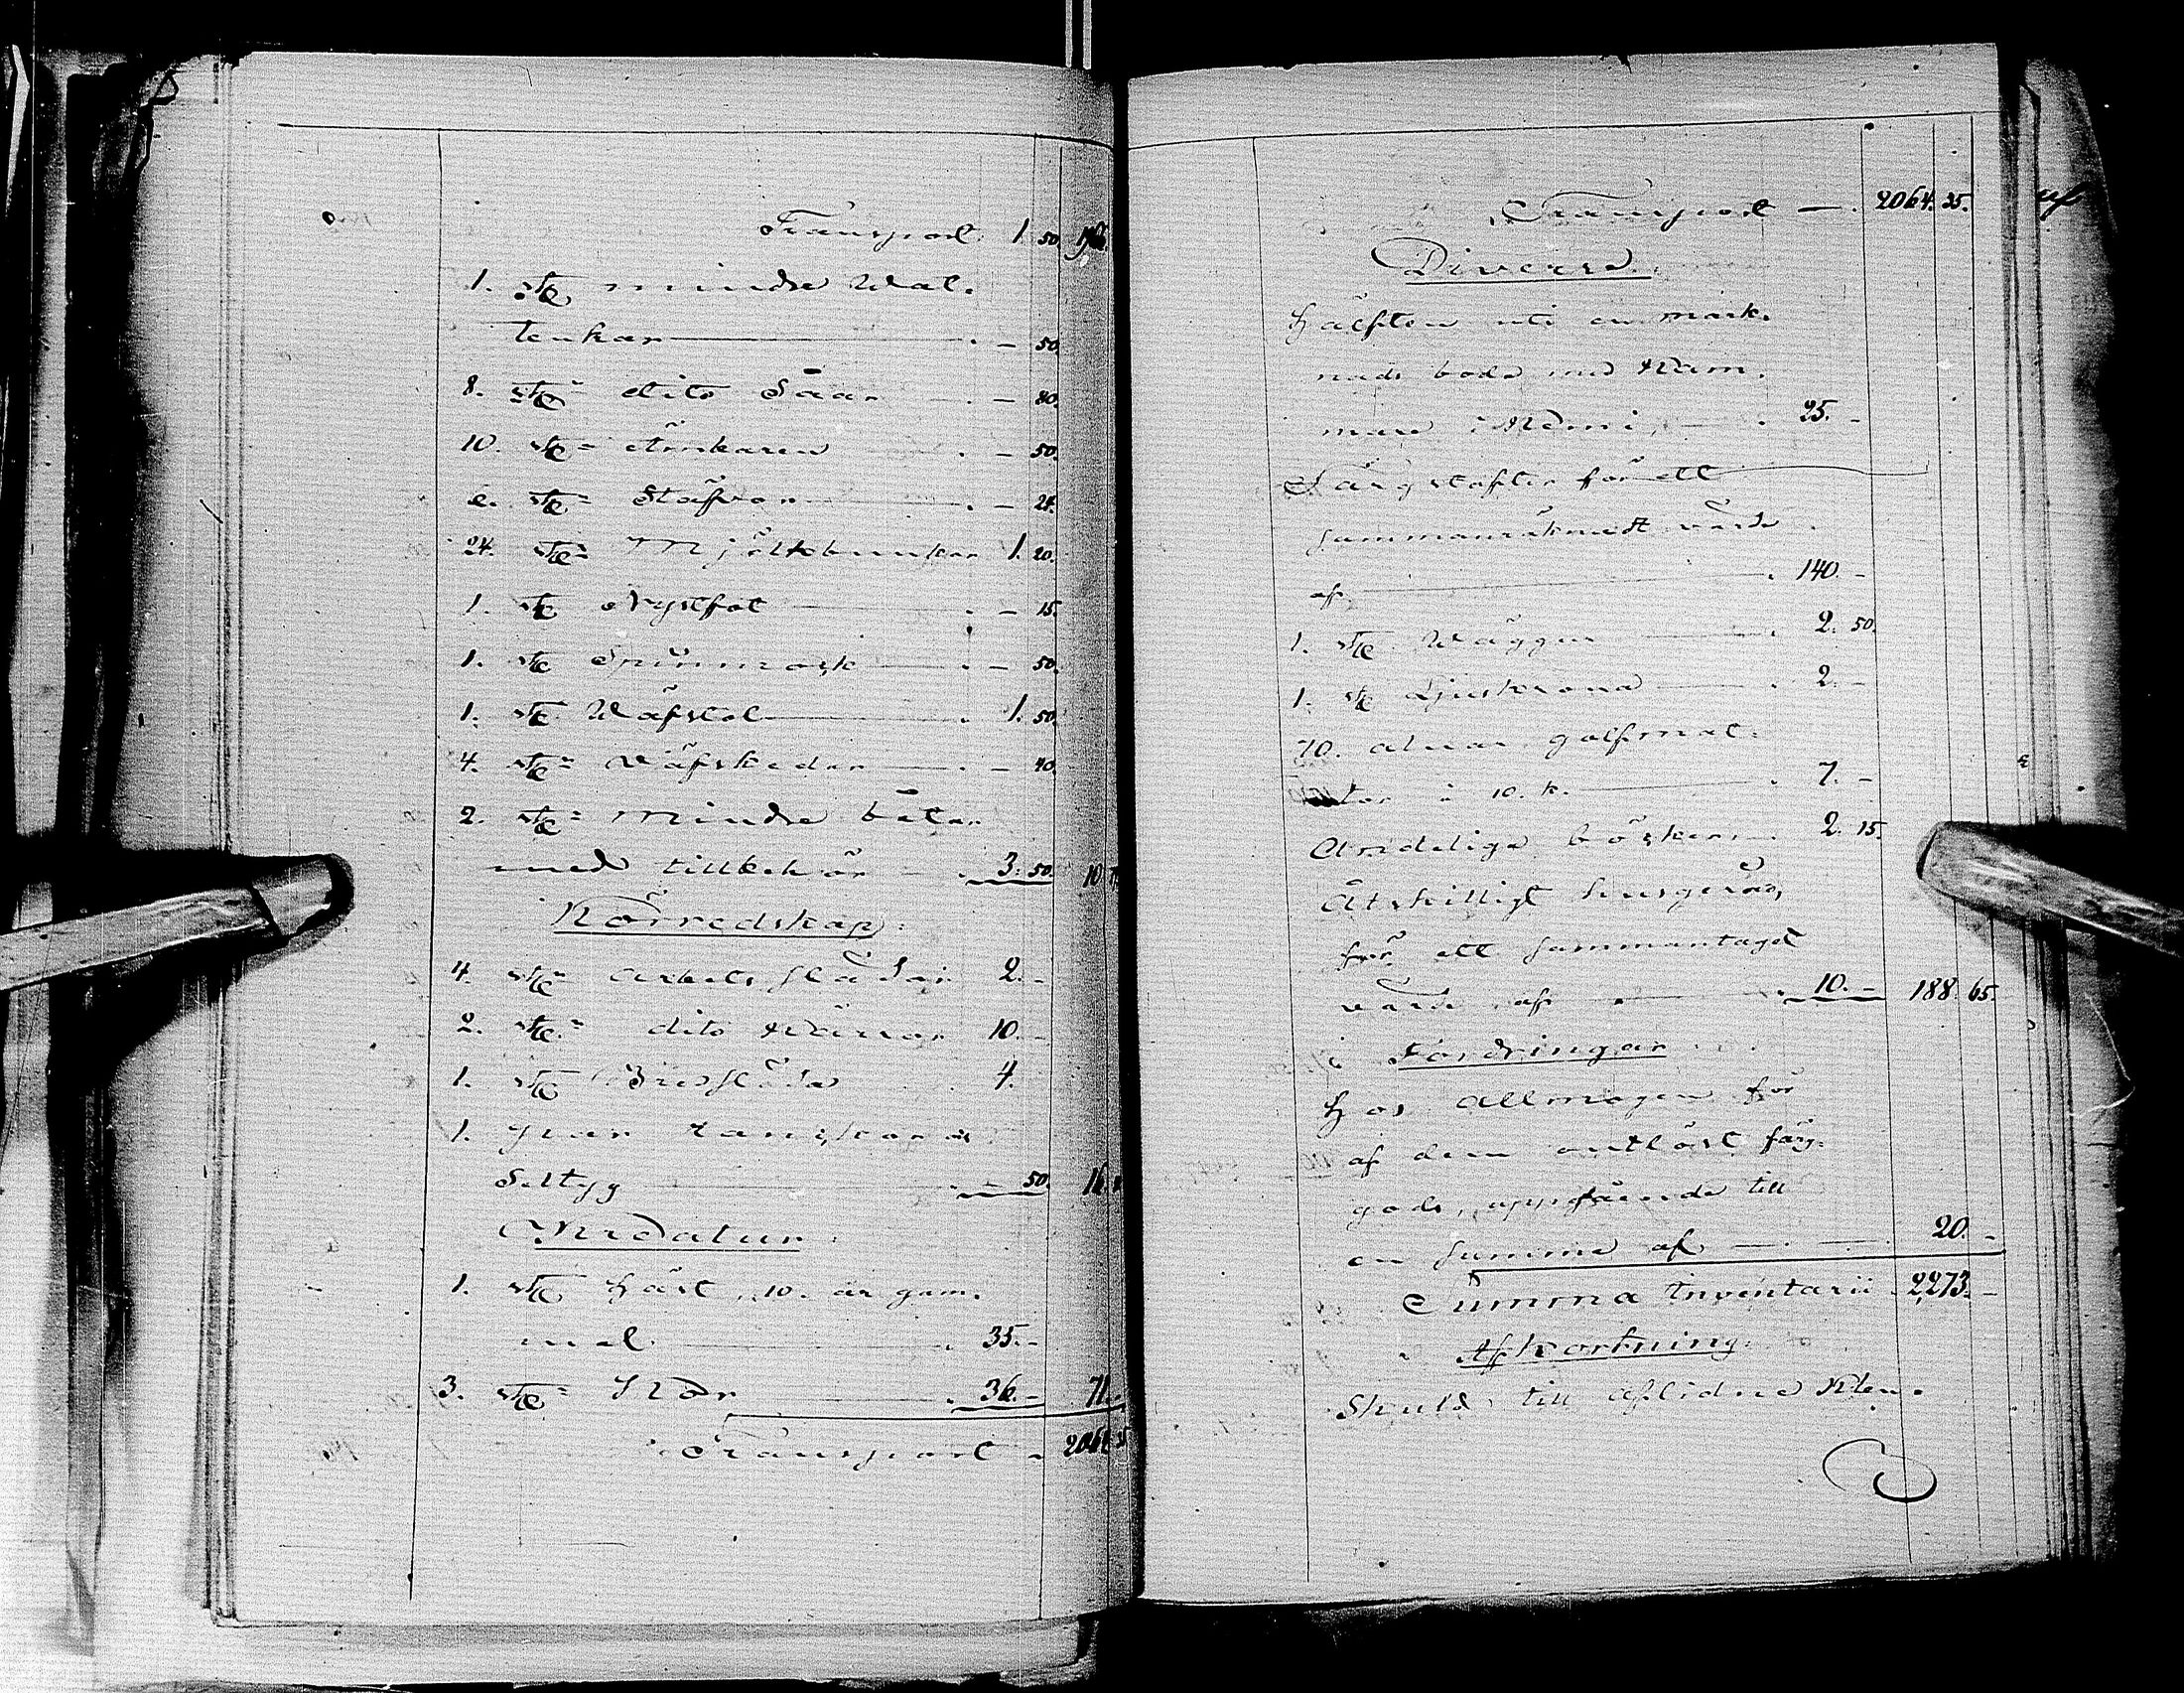 Transport 1. 50.
1. st. mindre Wat-
tenkar — 50.
8. st:r dito Såar — 80.
10. st:r Ämkaren — 50.
2. st:r Stäfvor — 24.
24. st:r Mjölkbunkar 1. 20.
1. st. Ystfat — 15.
1. st. Spinnrock — 50.
1. st. Wäfstol 1. 50.
4. st:r Wäfskedar — 40.
2. st:r mindre båtar
med tillbehör 3. 50. 10.
Körredskap:
4. st:r Arbets slädar 2. -
2. st:r dito Kärror 10. -
1. st. Ressläda 4.
1. par rankor o.
Seltyg — 50. 16.
Kreatur
1. st. Häst, 10. år gam-
mal 35. -
3. st:r Kor 36. - 71.
Transport 2064. 35
Transport — 2064. 35.
Diverse.
Hälften uti en mark-
nads bod med Kam-
mare i Kemi, 25. -
Färgstofter för ett
sammanräknadt värde
af 140. -
1. st. Wäggur 2. 50.
1. st. Ljuskrona 2. -
70. alnar golfmat-
tor à 10. k. 7. -
Andeliga böcker 2. 15.
Åtskilligt husgeråd,
för ett sammantaget
värde af 10. - 188. 65.
Fordringar
Hos Allmogen för
af dem outlöst färg-
gods, uppgående till
en summa af 20. -
Summa Inventarii 2,273. -
Afkortning:
Skuld till aflidne Klen-